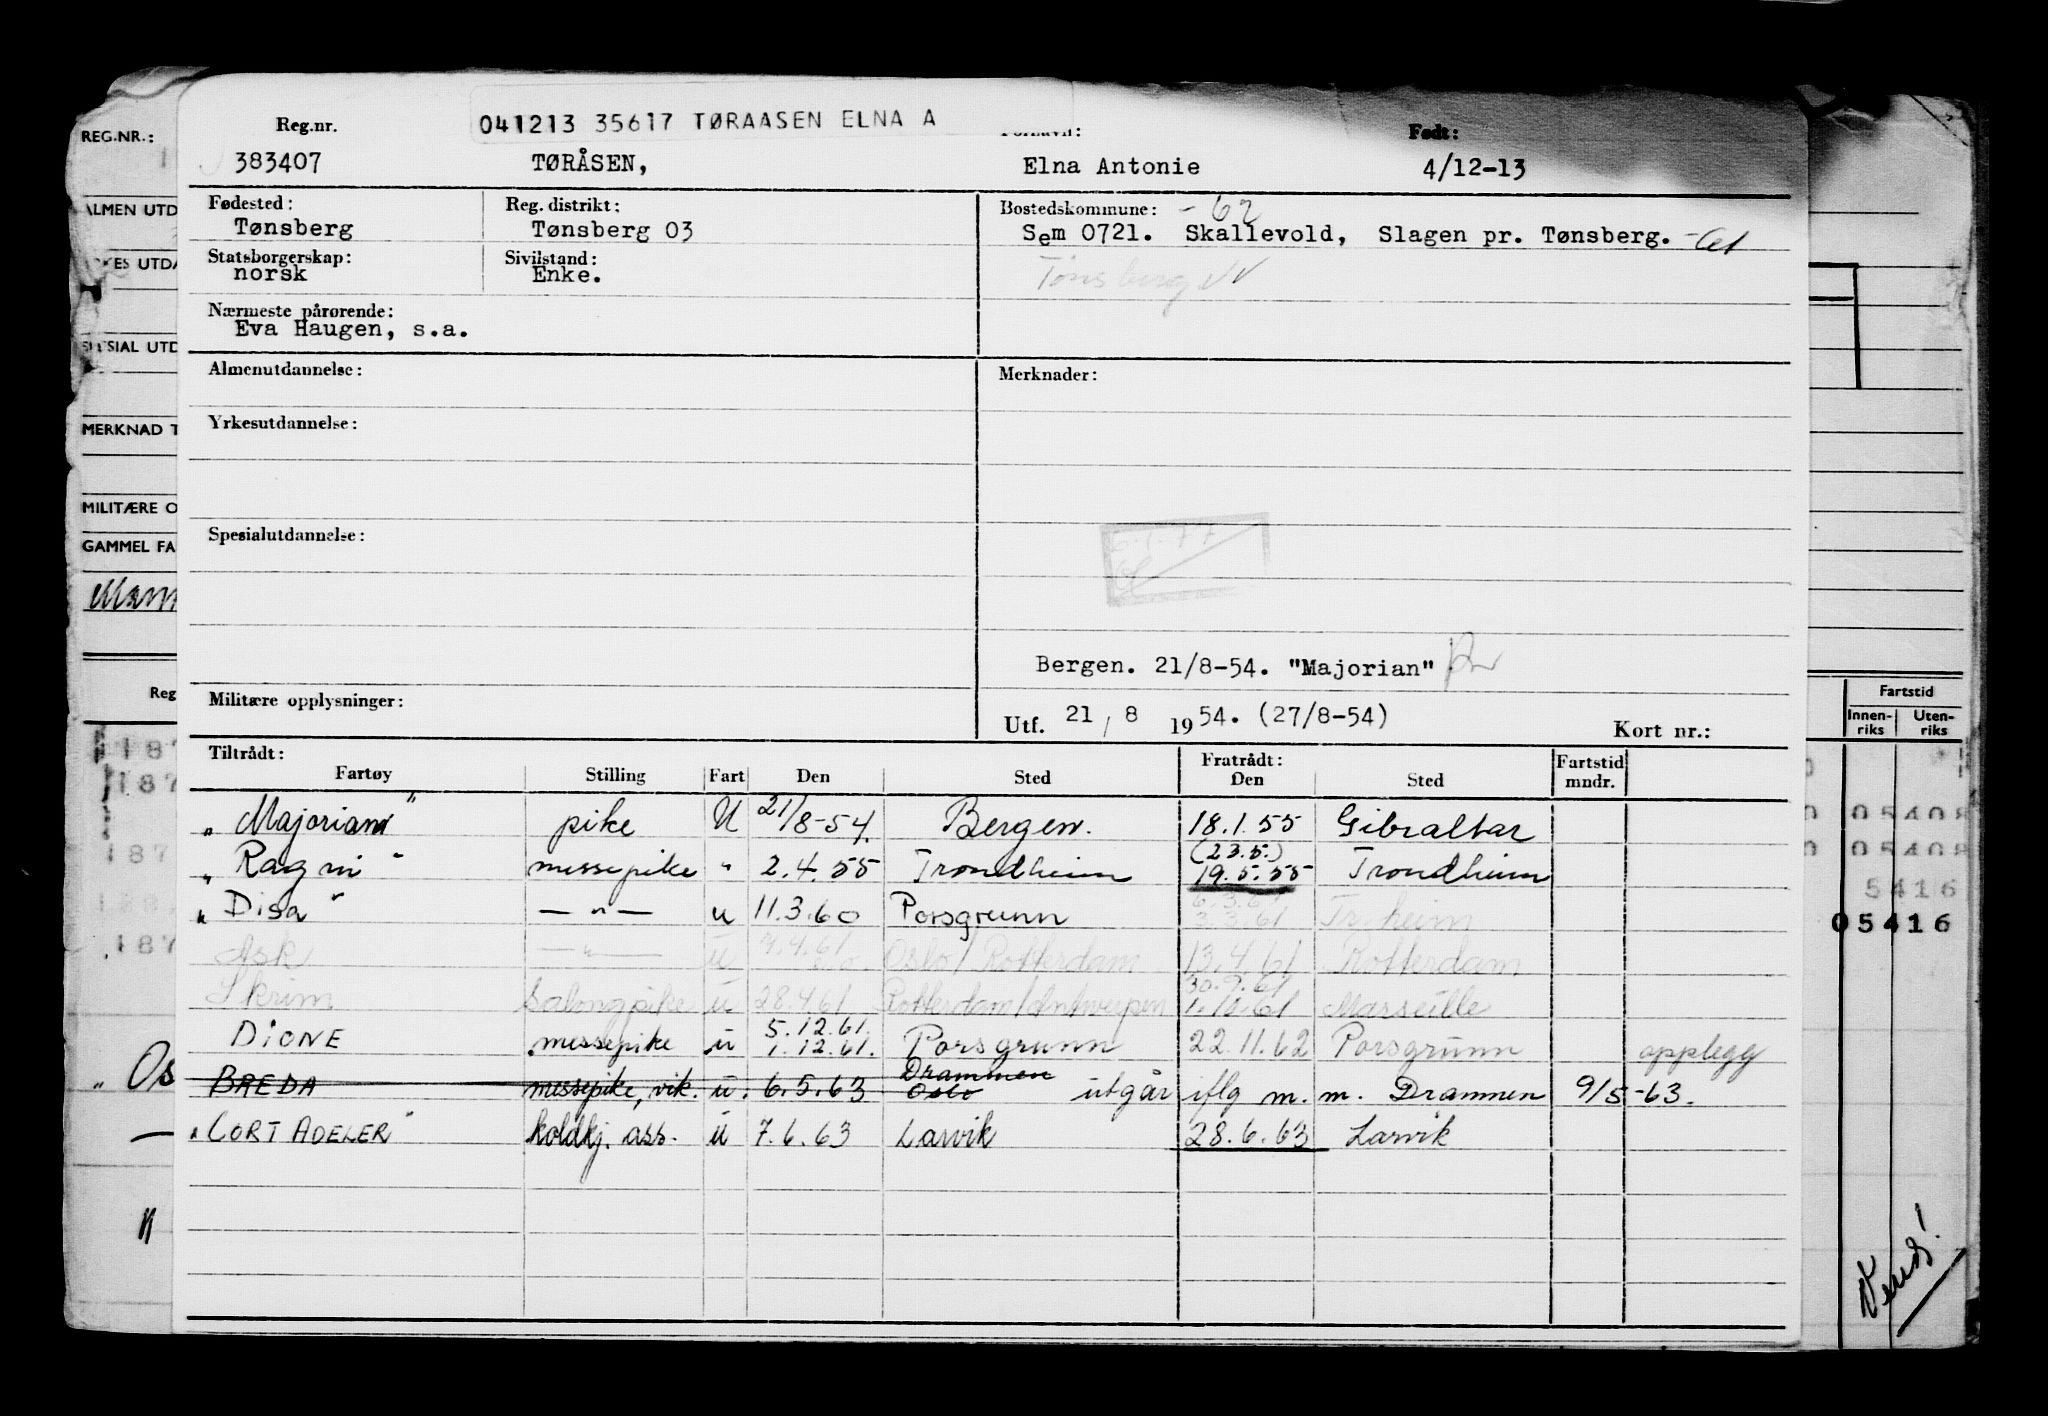 041213 35617 TØRAASEN ELNA A
REG.NR.: Reg.nr. Født:
383407 TØRÅSEN, Elna Antonie 4/12-13
Fødested: Reg. distrikt: Bostedskommune: -62
Tønsberg Tønsberg 03 Sem 0721. Skallevold, Slagen pr. Tønsberg. -61
Statsborgerskap: Sivilstand: Tønsberg VV
norsk Enke.
Nærmeste pårørende:
Eva Haugen, s.a.
Almenutdannelse: Merknader:
Yrkesutdannelse:
Spesialutdannelse:
Bergen. 21/8-54. "Majorian"
Militære opplysninger:
Utf. 21/8 1954. (27/8-54) Kort nr.:
Tiltrådt: Fratrådt: Fartstid
Fartøy Stilling Fart Den Sted Den Sted mndr.
"Majorian" pike U 21/8-54. Bergen. 18.1.55 Gibraltar
(23.5.)
"Ragni" messepike " 2.4.55 Trondheim 19.5.55 Trondheim
"Disa" — " — u 11.3.60 Porsgrunn 3.3.61 Tr.heim
Ask — " — u 4.4.61 Oslo/Rotterdam 13.4.61 Rotterdam
30.9.61
Skrim Salongpike u 28.4.61 Rotterdam/Antwerpen 1.10.61 Marseille
5.12.61.
DIONE messepike u 1.12.61. Porsgrunn 22.11.62 Porsgrunn opplegg
Drammen
BREDA messepike, vik. u. 6.5.63 Oslo utgår iflg m. m. Drammen 9/5-63.
"CORT ADELER" koldkj. ass. u 7.6.63 Larvik 28.6.63 Larvik
ALMEN UTD
MERKNAD T
MILITÆRE O
GAMMEL FA
Reg
187
187
187
187
Os
"
Fartstid
Innen-riks Uten-riks
05408
05408
5416
05416
Vend!